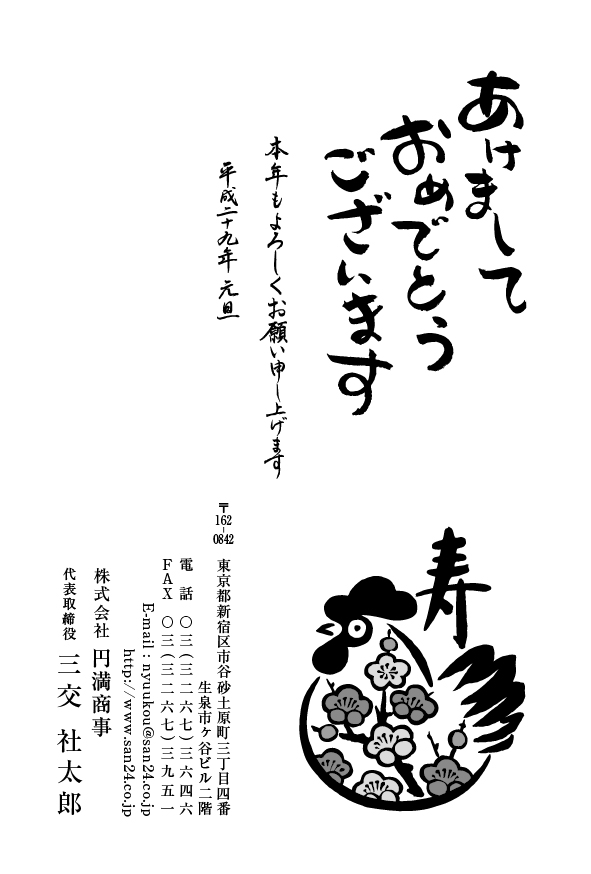 あけまして
おめでとう
ございます
本年もよろしくお願い申し上げます
平成二十九年 元旦
寿
〒162-0842
東京都新宿区市谷砂土原町三丁目四番
生泉市ヶ谷ビル二階
電話 〇三(三二六七)三六四六
FAX 〇三(三二六七)三九五一
E-mail : nyuukou@san24.co.jp
http://www.san24.co.jp
株式会社 円満商事
代表取締役 三交 社太郎